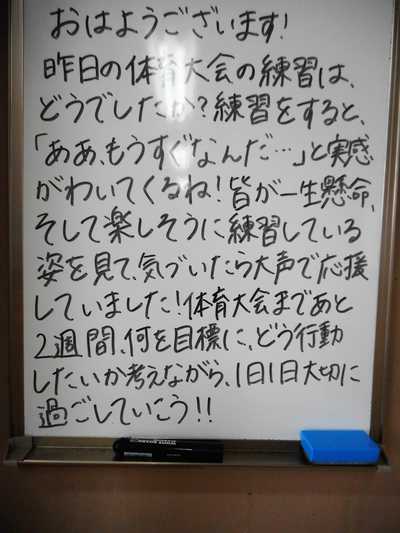 おはようございます!
昨日の体育大会の練習は、
どうでしたか?練習をすると、
「ああ、もうすぐなんだ…」と実感
がわいてくるね!皆が一生懸命、
そして楽しそうに練習している
姿を見て、気づいたら大声で応援
していました!体育大会まであと
2週間、何を目標に、どう行動
したいか考えながら、1日1日大切に
過ごしていこう!!